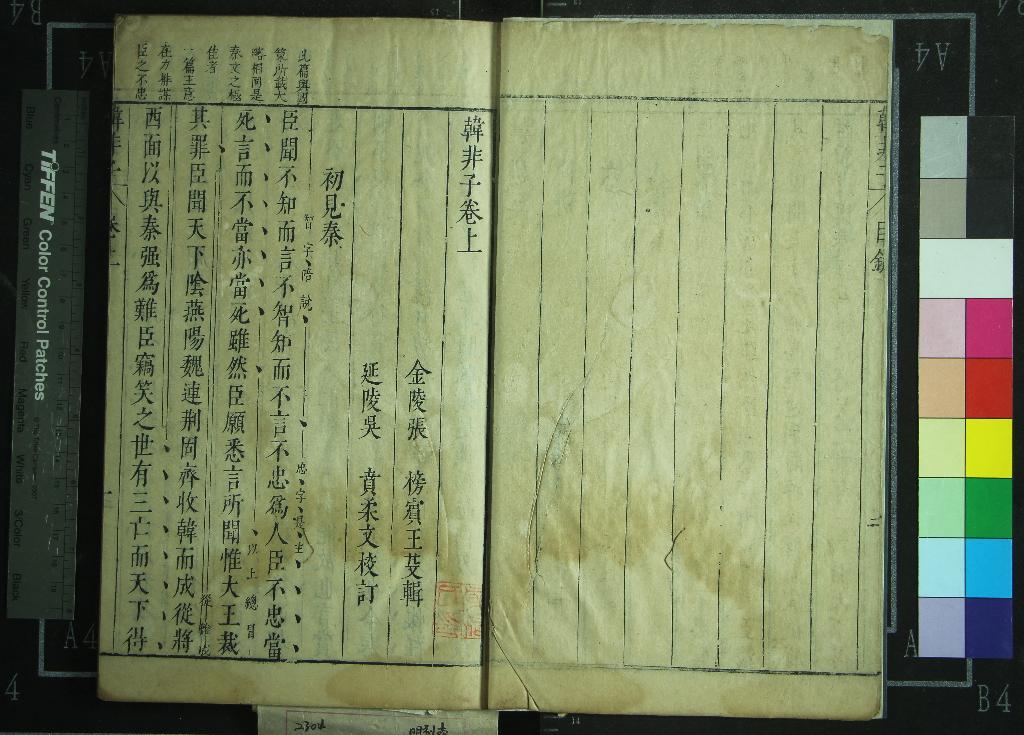 韓非子卷上
金陵張 榜賓王芟輯
延陵吳 賁柔文校訂
初見秦
智字陪說
忠字是主
臣聞不知而言不智知而不言不忠爲人臣不忠當
死言而不當亦當死雖然臣願悉言所聞惟大王裁
以上總冒
其罪臣聞天下陰燕陽魏連荆固齊收韓而成從將
西面以與秦强爲難臣竊笑之世有三亡而天下得
此篇與國
策所載大
略相同是
秦文之極
佳者
一篇主意
在力排謀
臣之不忠
韓非子
卷上
目錄
TIFFEN Color Control Patches
Blue Cyan Green Yellow Red Magenta White 3/Color Black
A4
A4
A4
B4
B4
2304